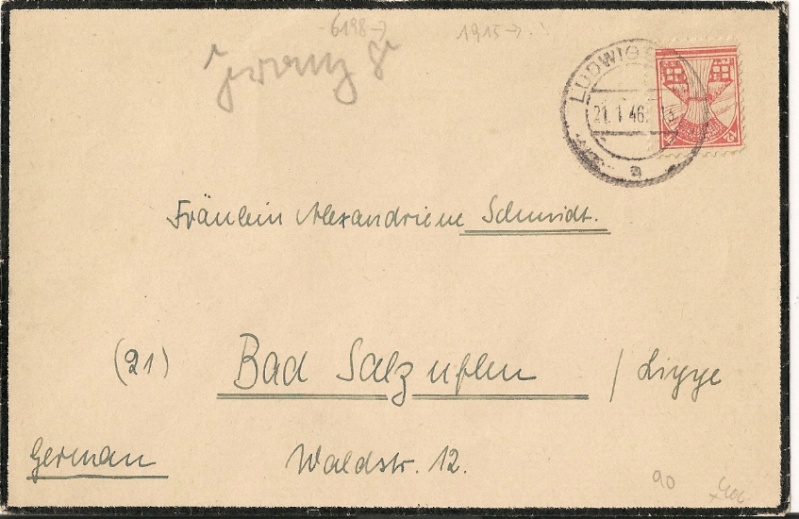 -6198→
1915→
LUDWIGS
21.1.46
a
12
Fräulein Alexandrine Schmidt.
(21) Bad Salzuflen / Lippe
German Waldstr. 12.
90